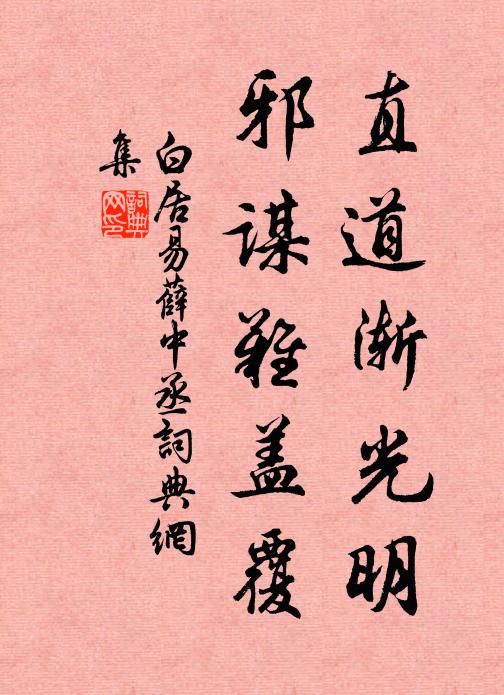 直道渐光明
邪谋难盖覆
白居易薛中丞詞典網
集
詞典网印